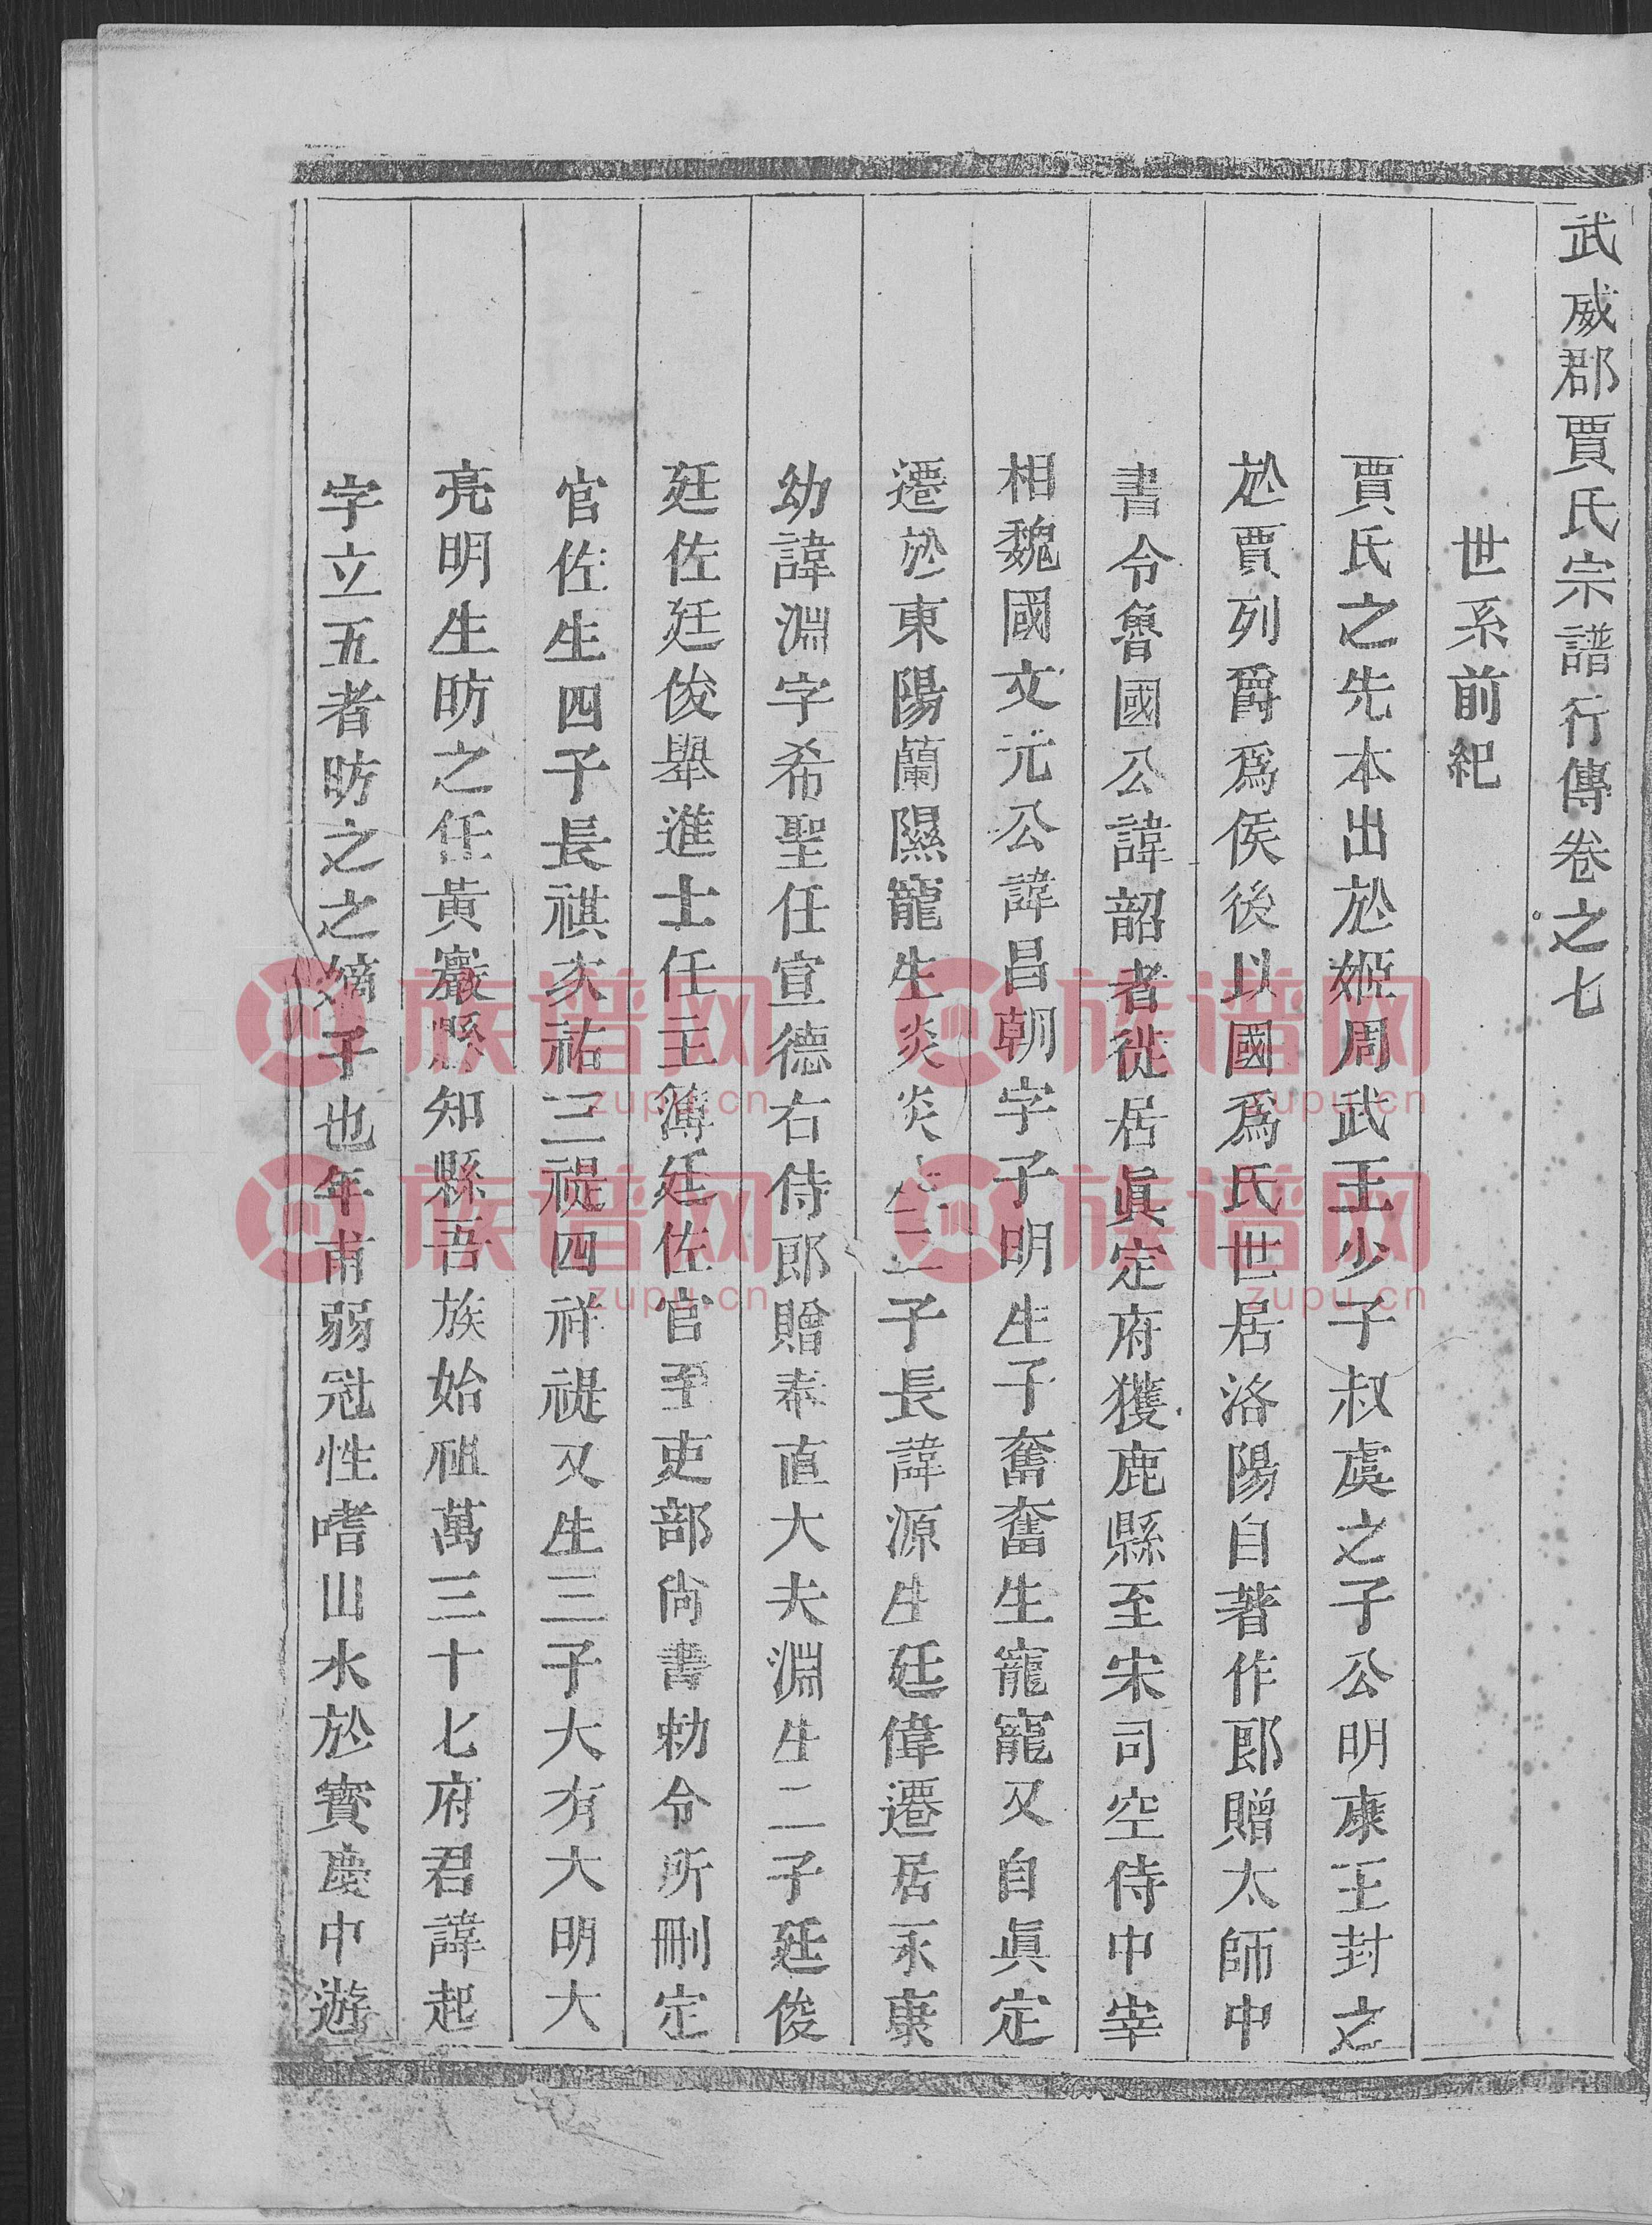 武威郡賈氏宗譜行傳卷之七
世系前紀
賈氏之先本出於姬周武王少子叔虞之子公明康王封之
於賈列爵爲侯後以國爲氏世居洛陽自著作郎贈太師中
書令魯國公諱韶者從居眞定府獲鹿縣至宋司空侍中宰
相魏國文元公諱昌朝字子明生子奮奮生寵寵又自眞定
遷於東陽蘭隰寵生炎炎生二子長諱源生廷偉遷居永康
幼諱淵字希聖任宣德右侍郎贈奉直大夫淵生二子廷俊
廷佐廷俊舉進士任主簿廷佐官至吏部尚書勅令所刪定
官佐生四子長祺次祐三禔四祥禔又生三子大有大明大
亮明生昉之任黃巖縣知縣吾族始祖萬三十七府君諱起
字立五者昉之之嫡子也年甫弱冠性嗜山水於寳慶中遊
族谱网
zupu.cn
族谱网
zupu.cn
族谱网
zupu.cn
族谱网
zupu.cn